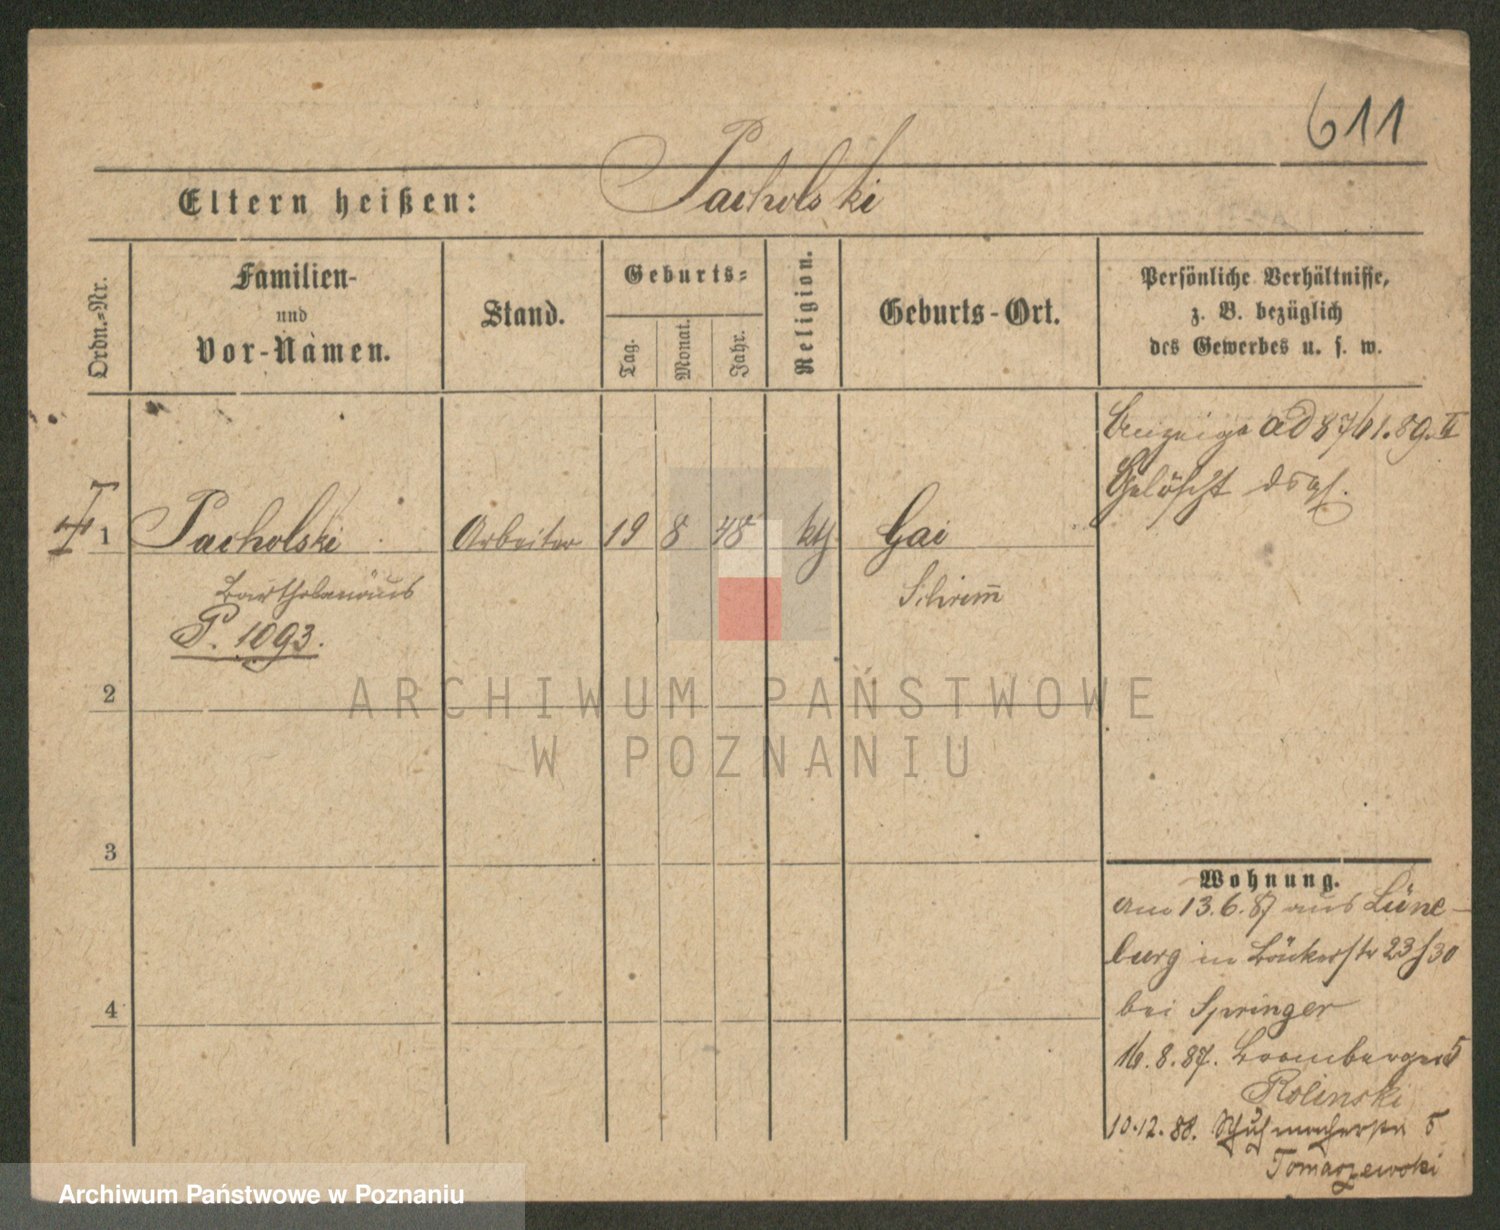 611
Eltern heißen: Pacholski
Ordn.-Nr.
Familien-
und
Vor-Namen.
Stand.
Geburts-
Tag.
Monat.
Jahr.
Religion.
Geburts-Ort.
Persönliche Verhältnisse,
z. B. bezüglich
des Gewerbes u. s. w.
Anzeige ad 8761.89. II
Gelöscht dsgl.
1 Pacholski Arbeiter 19 8 48 kth Gai
Bartholomäus Schrimm
P. 1093.
2
3
4
Wohnung.
am 13.6.87 aus Lüne-
burg in Bäckerstr 23/30
bei Springer
16.8.87. Bromberger 5
Rolinski
10.12.88. Schuhmacherstr 5
Tomaszewski
ARCHIWUM PAŃSTWOWE
W POZNANIU
Archiwum Państwowe w Poznaniu